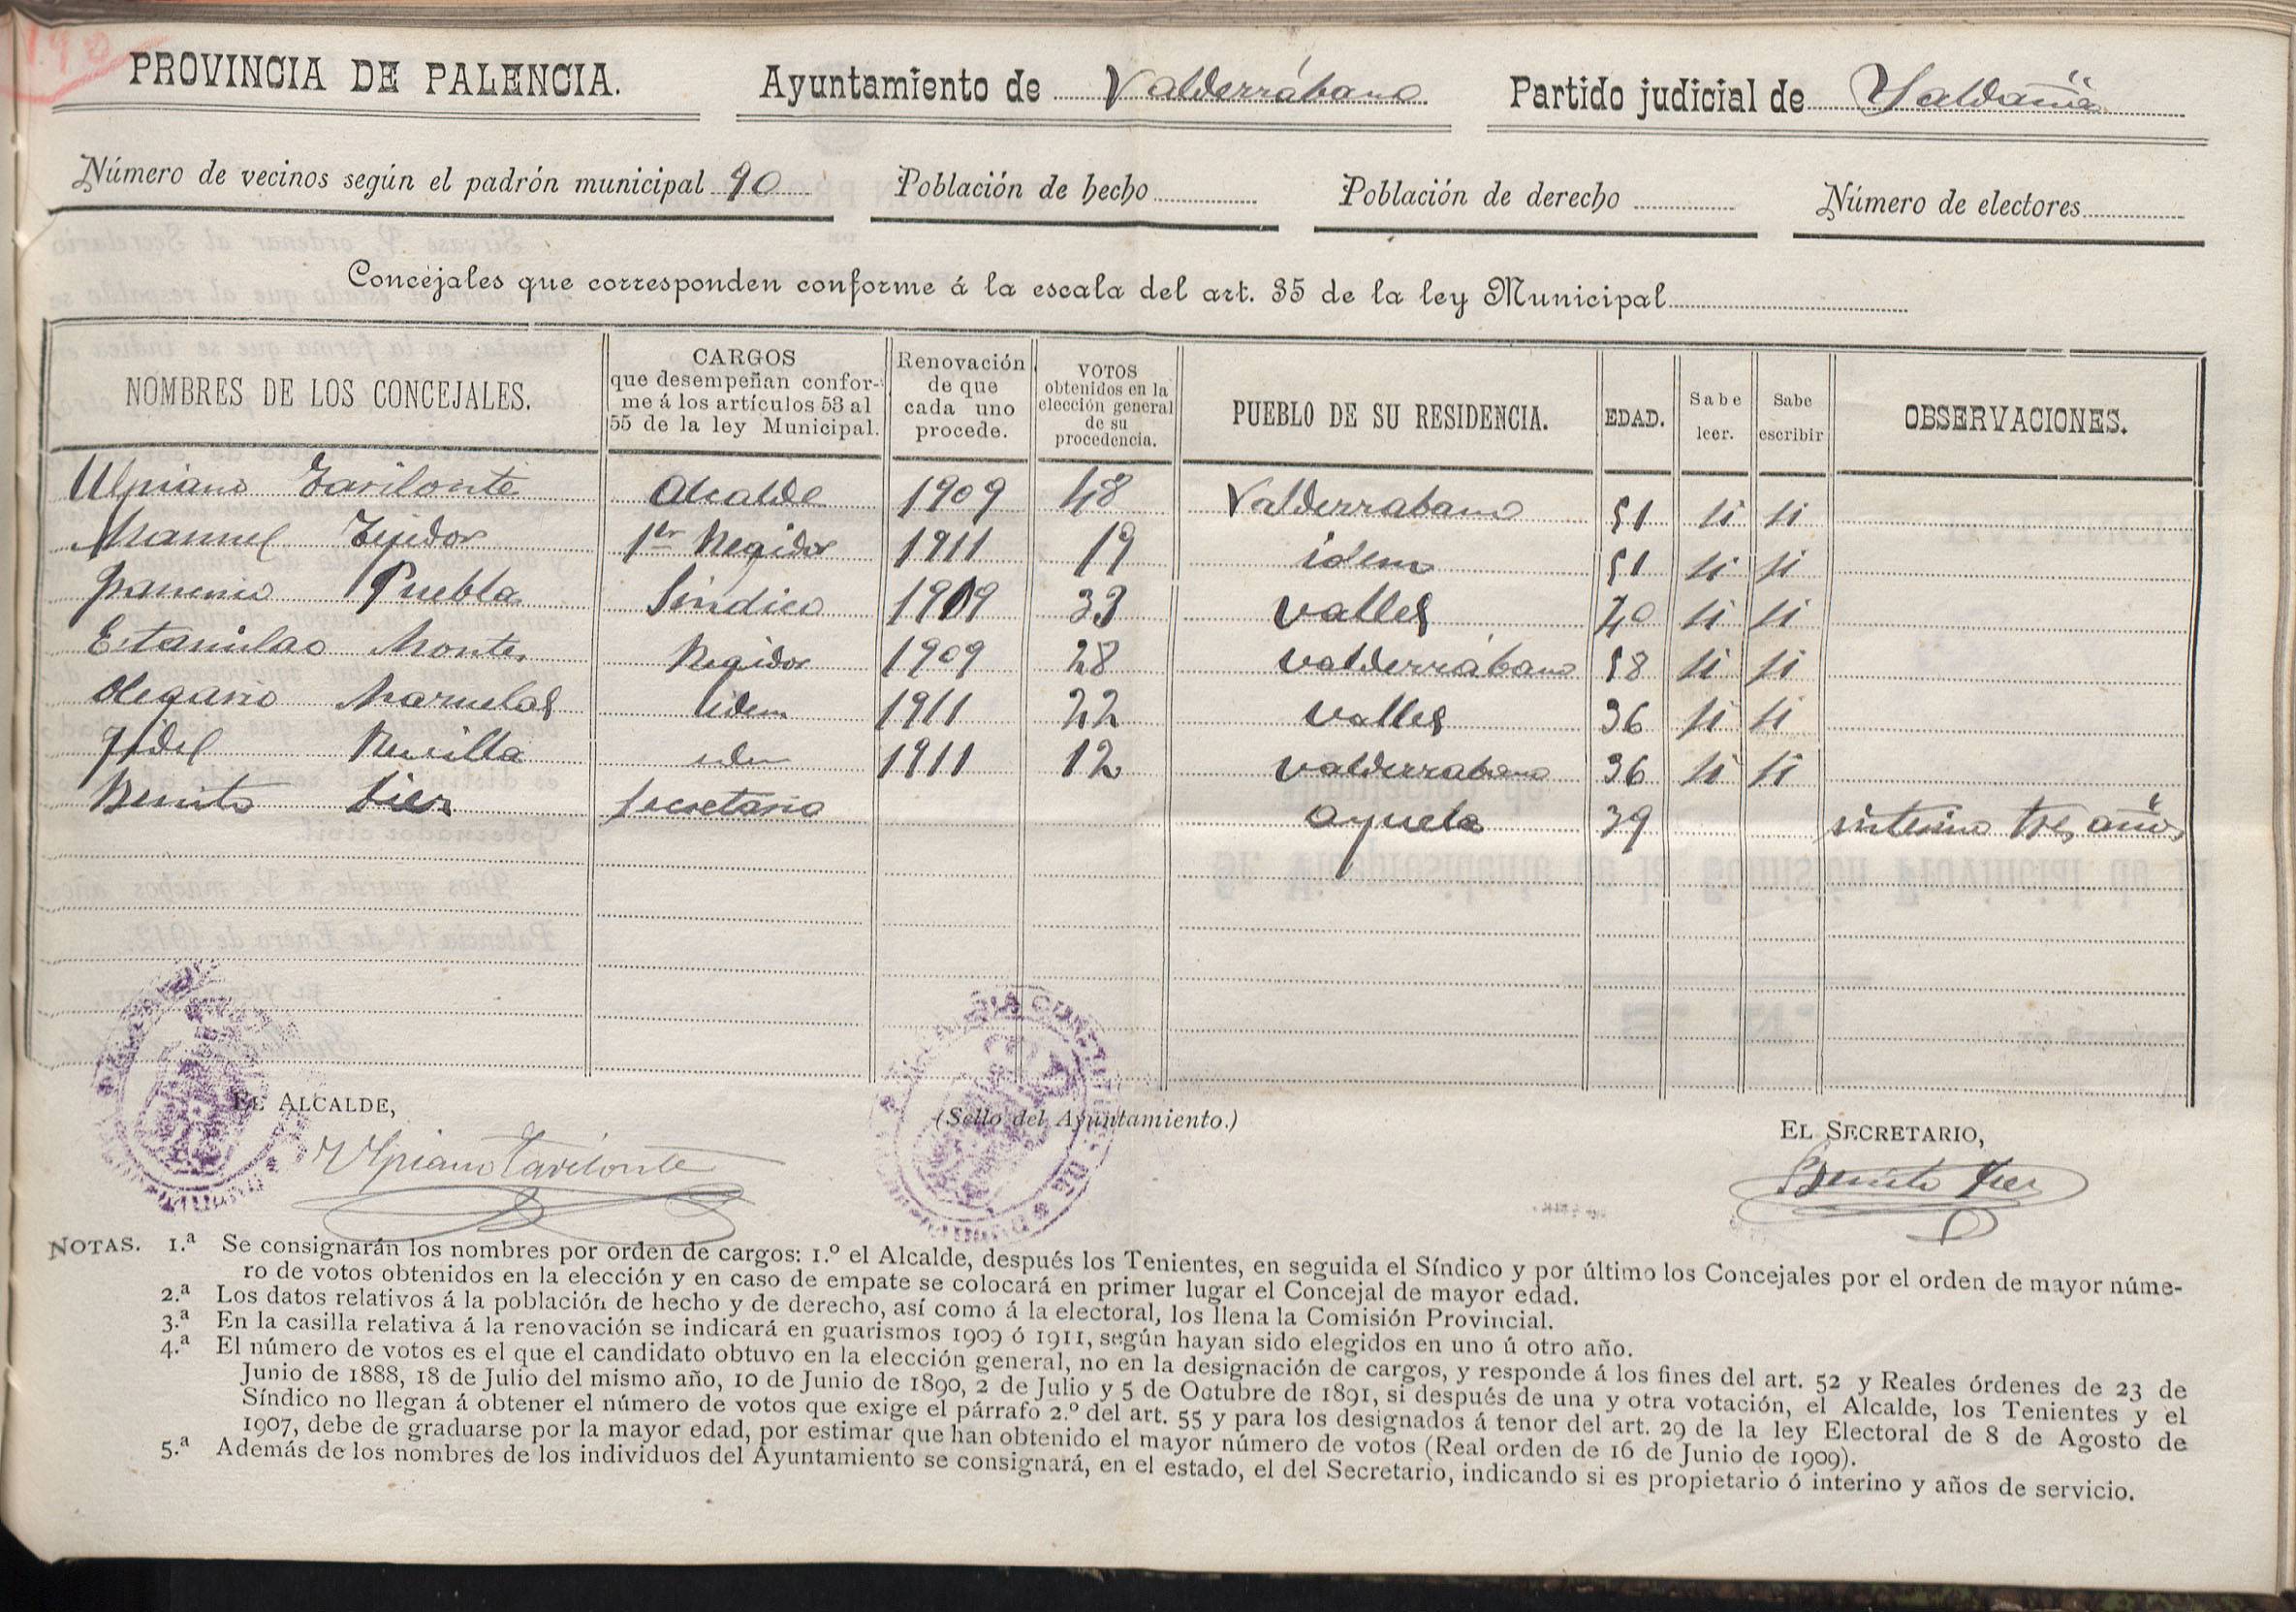 190
PROVINCIA DE PALENCIA. Ayuntamiento de Valderrábano Partido judicial de Saldaña
Número de vecinos según el padrón municipal 90 Población de hecho Población de derecho Número de electores
Concejales que corresponden conforme á la escala del art. 35 de la ley Municipal
NOMBRES DE LOS CONCEJALES. CARGOS que desempeñan conforme á los artículos 53 al 55 de la ley Municipal. Renovación de que cada uno procede. VOTOS obtenidos en la elección general de su procedencia. PUEBLO DE SU RESIDENCIA. EDAD. Sabe leer. Sabe escribir OBSERVACIONES.
Ulpiano Tarilonte Alcalde 1909 48 Valderrabano 51 si si
Manuel Tejedor 1er Regidor 1911 19 idem 51 si si
Puebla Sindico 1909 33 Valles 40 si si
Estanislao Montes Regidor 1909 28 Valderrábano 58 si si
Olegario idem 1911 22 Valles 36 si si
Fidel Revilla iden 1911 12 Valderrabano 36 si si
Benito Secretario Ayuela 39 interino tres años
EL ALCALDE, (Sello del Ayuntamiento.) EL SECRETARIO,
Ulpiano Tarilonte Benito
NOTAS. 1.ª Se consignarán los nombres por orden de cargos: 1.º el Alcalde, después los Tenientes, en seguida el Síndico y por último los Concejales por el orden de mayor núme-
ro de votos obtenidos en la elección y en caso de empate se colocará en primer lugar el Concejal de mayor edad.
2.ª Los datos relativos á la población de hecho y de derecho, así como á la electoral, los llena la Comisión Provincial.
3.ª En la casilla relativa á la renovación se indicará en guarismos 1909 ó 1911, según hayan sido elegidos en uno ú otro año.
4.ª El número de votos es el que el candidato obtuvo en la elección general, no en la designación de cargos, y responde á los fines del art. 52 y Reales órdenes de 23 de
Junio de 1888, 18 de Julio del mismo año, 10 de Junio de 1890, 2 de Julio y 5 de Octubre de 1891, si después de una y otra votación, el Alcalde, los Tenientes y el
Síndico no llegan á obtener el número de votos que exige el párrafo 2.º del art. 55 y para los designados á tenor del art. 29 de la ley Electoral de 8 de Agosto de
1907, debe de graduarse por la mayor edad, por estimar que han obtenido el mayor número de votos (Real orden de 16 de Junio de 1909).
5.ª Además de los nombres de los individuos del Ayuntamiento se consignará, en el estado, el del Secretario, indicando si es propietario ó interino y años de servicio.